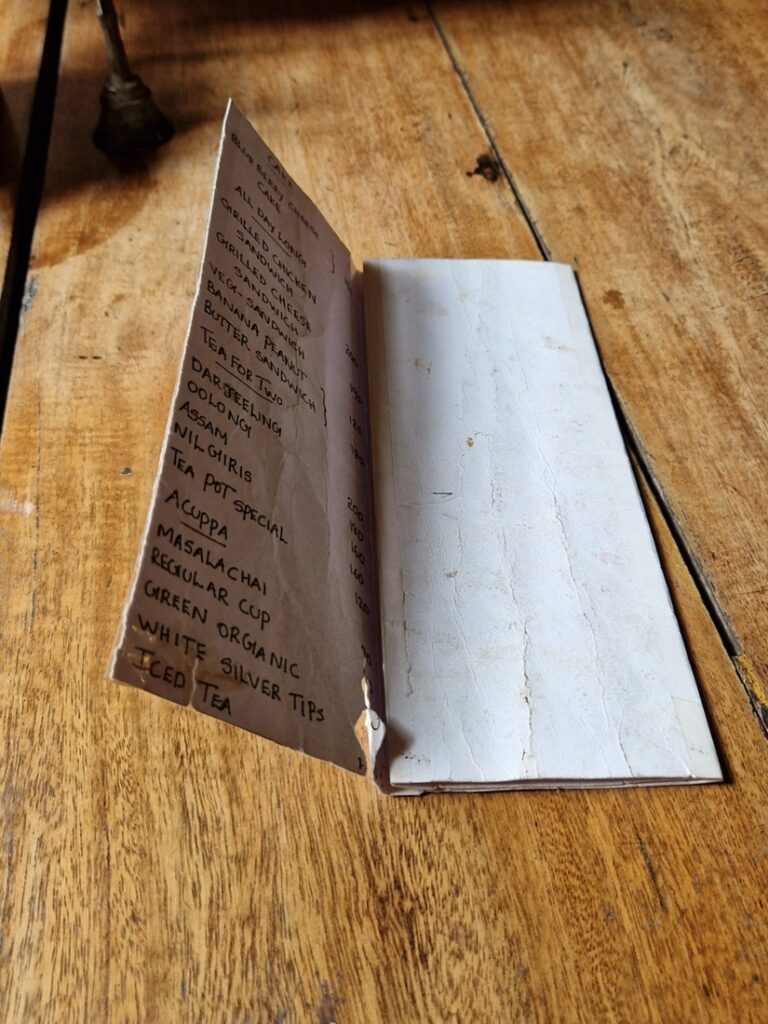 CAKE
BLUE BERRY CHEESE
CAKE
ALL DAY LONG
GRILLED CHICKEN
SANDWICH 200
GRILLED CHEESE
SANDWICH
VEG-SANDWICH 120
BANANA PEANUT
BUTTER SANDWICH 180
TEA FOR TWO
DARJEELING 200
OOLONG 180
ASSAM 160
NILGIRIS 160
TEA POT SPECIAL 120
ACUPPA
MASALA CHAI
REGULAR CUP
GREEN ORGANIC
WHITE SILVER TIPS
ICED TEA